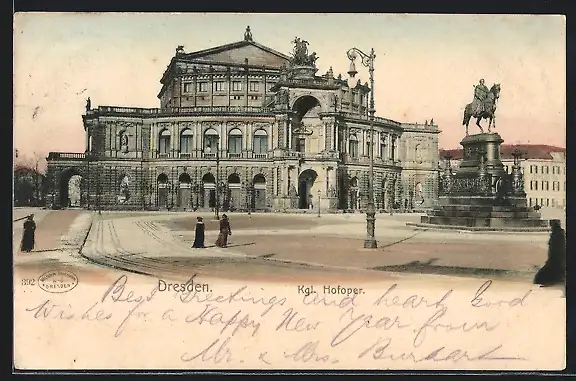 Dresden. Kgl. Hofoper.
392
DRESDEN
Best Greetings and heart Good
Wishes for a Happy New Year from
Mr. & Mrs.